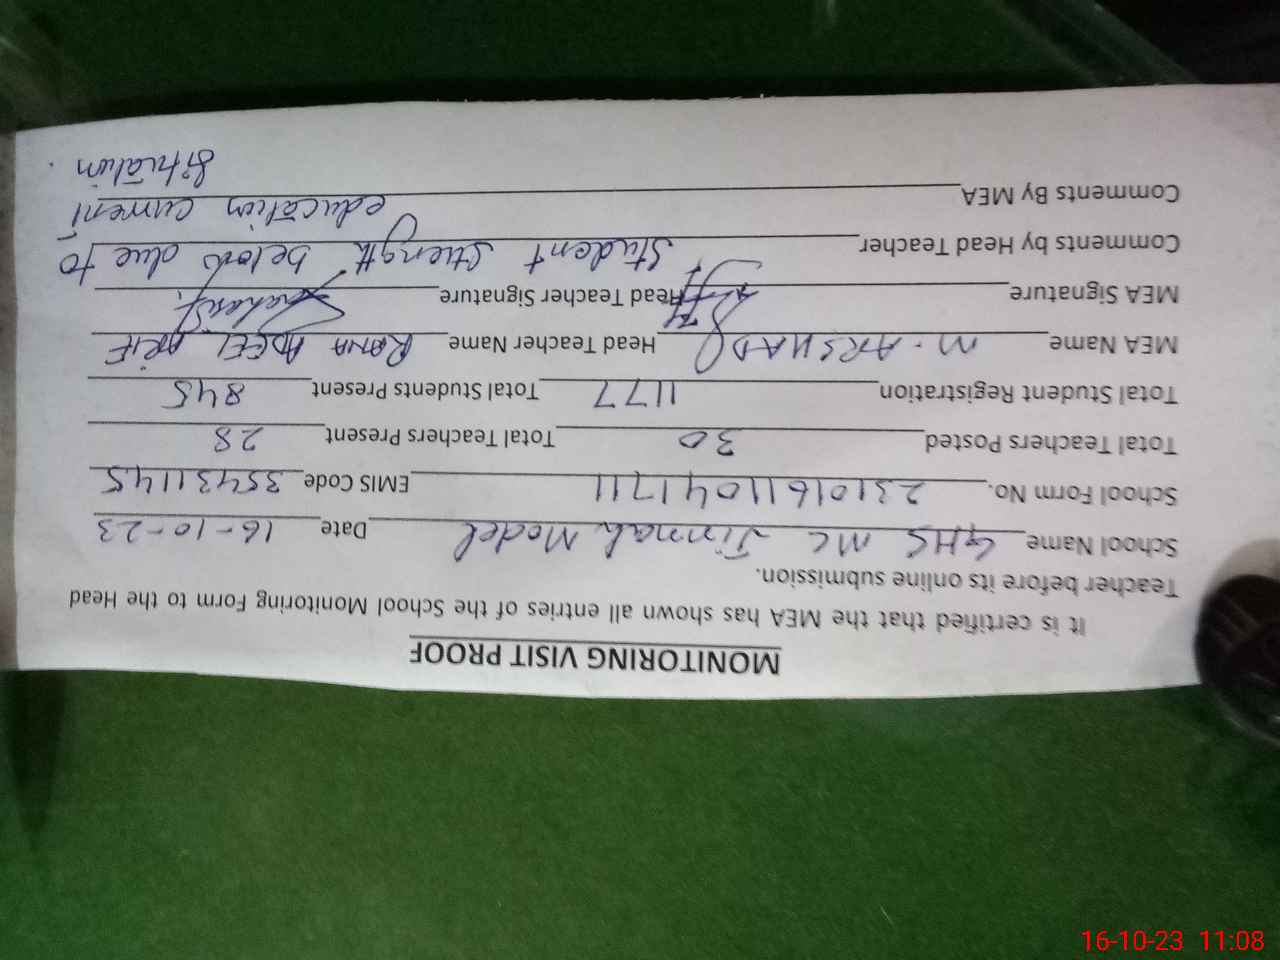 MONITORING VISIT PROOF
It is certified that the MEA has shown all entries of the School Monitoring Form to the Head
Teacher before its online submission.
School Name GHS MC Jinnah Model Date 16-10-23
School Form No. 23101611041711 EMIS Code 35431145
Total Teachers Posted 30 Total Teachers Present 28
Total Student Registration 1177 Total Students Present 845
MEA Name M. ARSHAD Head Teacher Name RANA ADEEL ARIF
MEA Signature Head Teacher Signature
Comments by Head Teacher Student strength below due to
education current
Comments By MEA
situation.
16-10-23 11:08